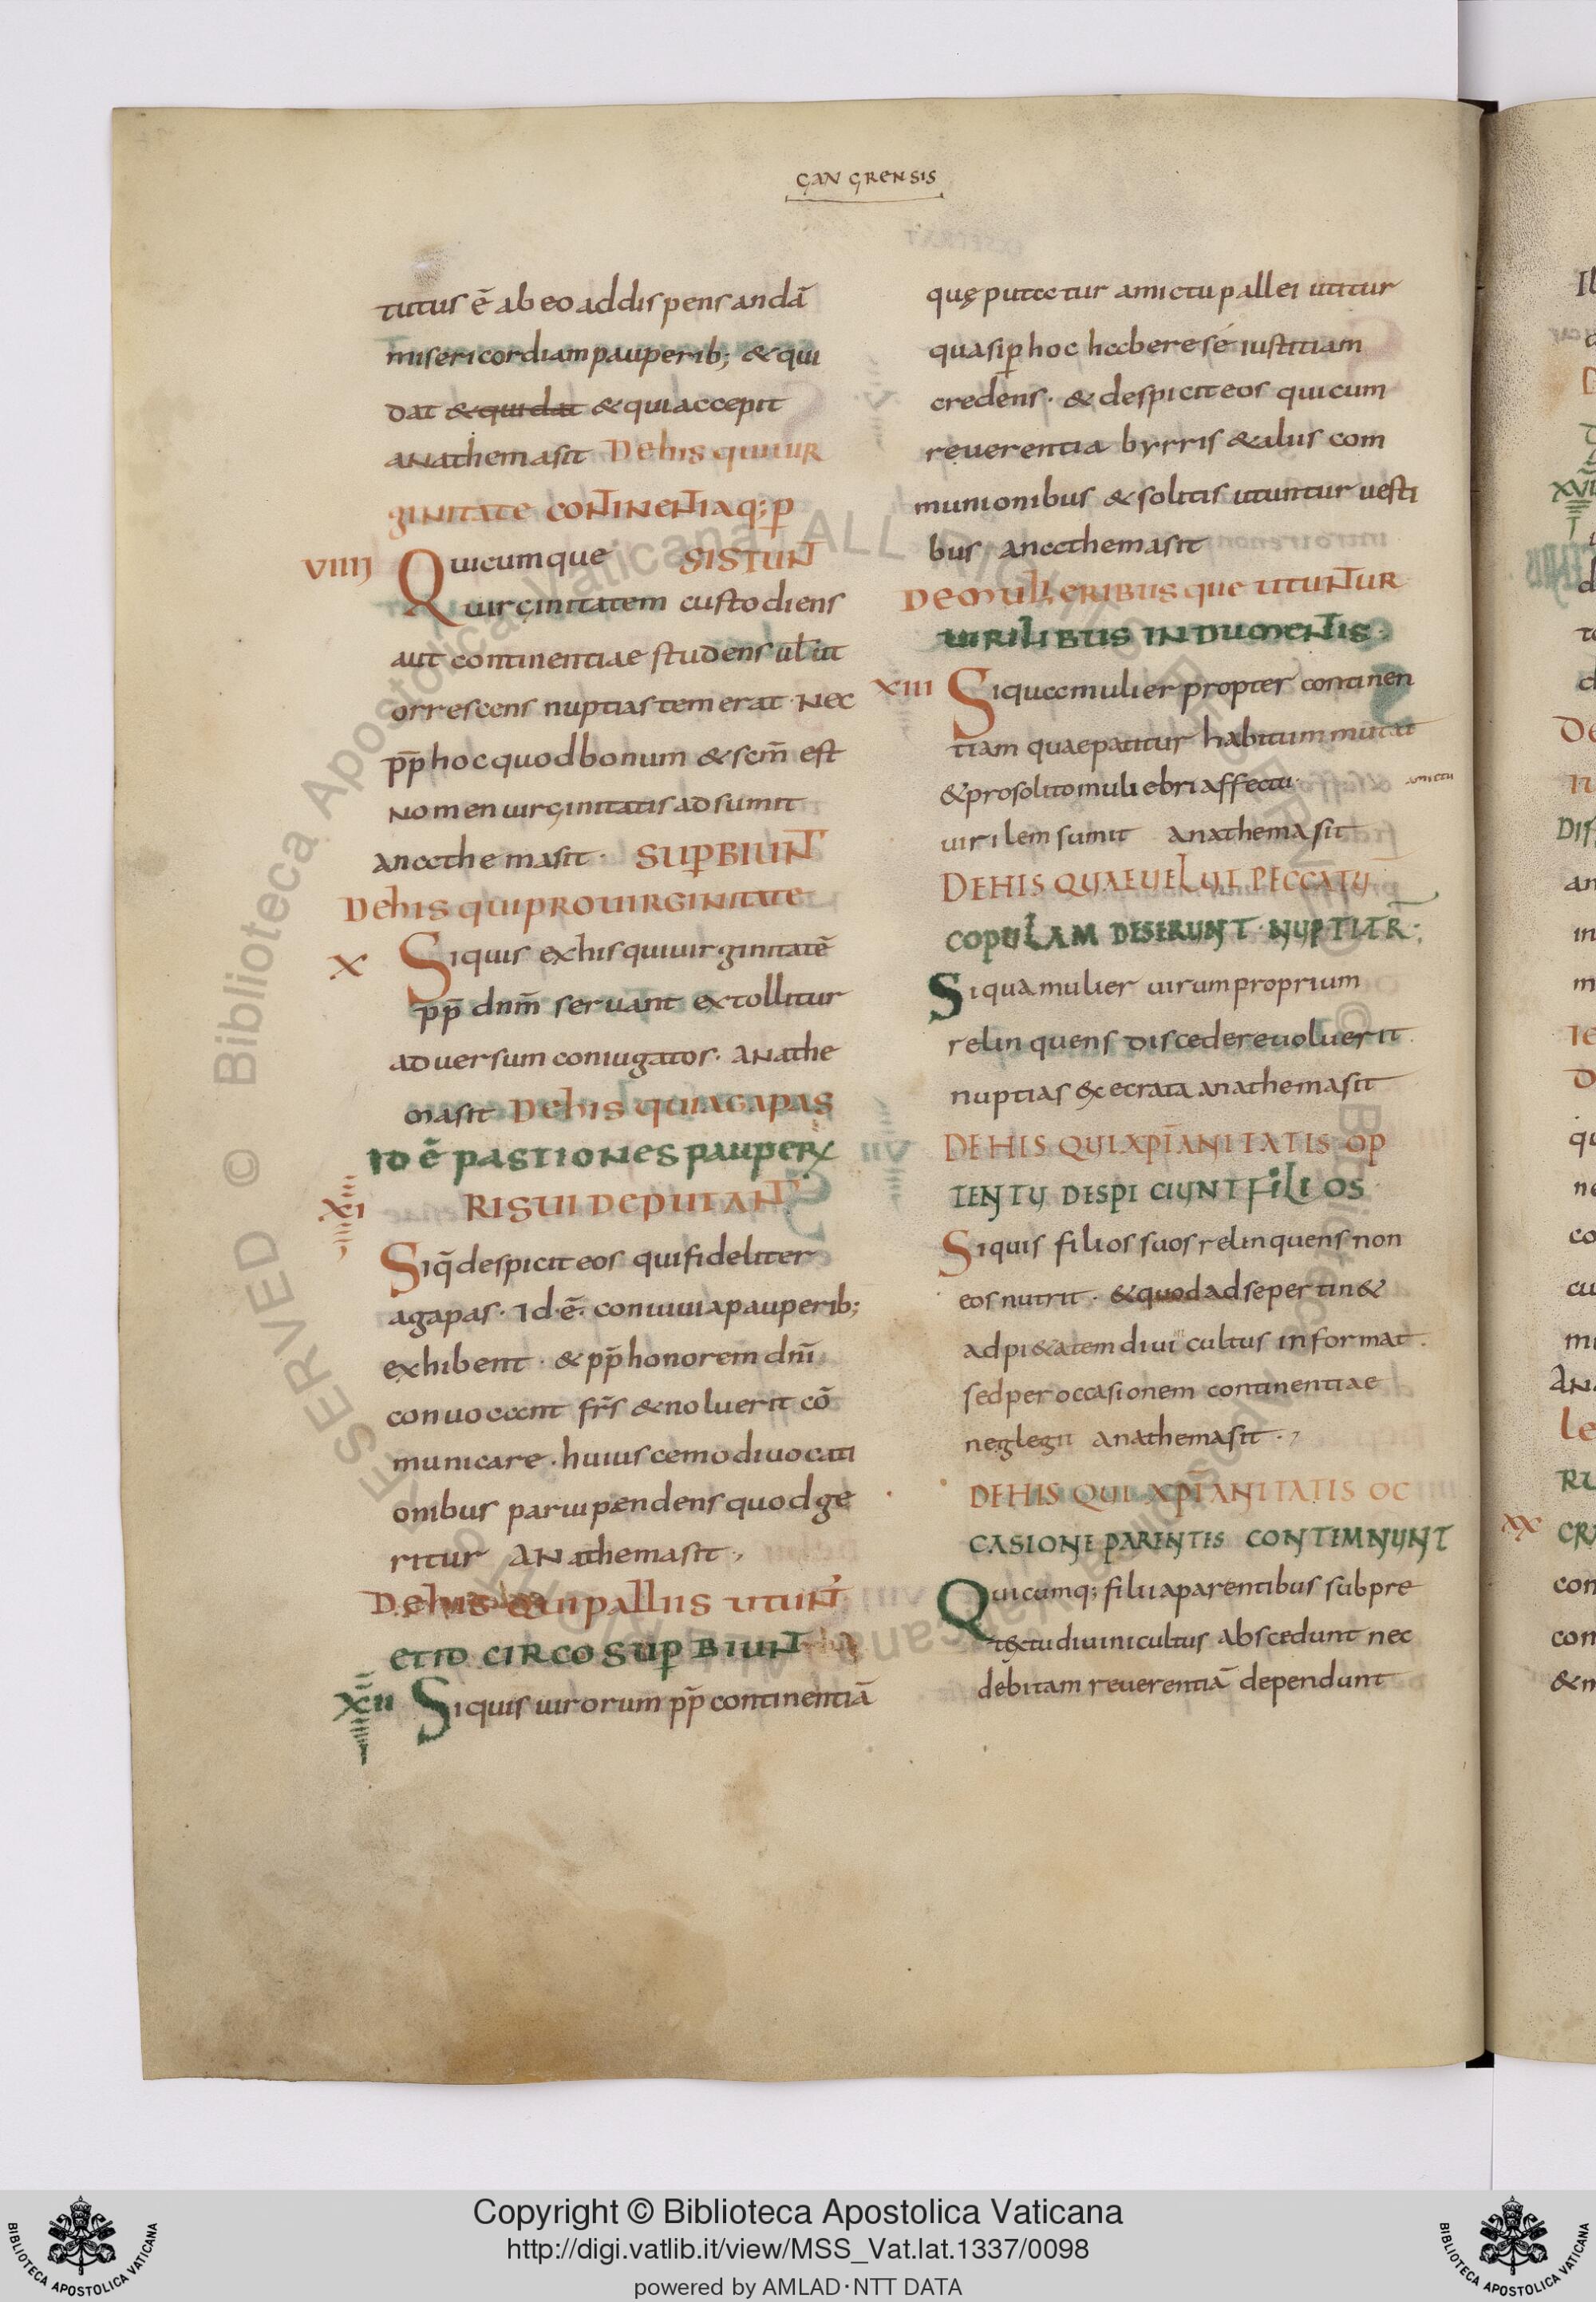 GANGRENSIS
tutus ē ab eo ad dispensandā
misericordiam pauperib; & qui
dat & qui dat & qui accepit
anathema sit De his qui uir
ginitate continentiaq; p̱
VIIII Quicumque SISTUNT
uirginitatem custodiens
aut continentiae studens uł ut
orrescens nuptias temerat · Nec
pp̄ hoc quod bonum & scm̄ est
nomen uirginitatis adsumit
anathema sit · SUPBIUNT
De his qui pro uirginitate
X Siquis ex his qui uirginitatē
pp̄ dnm̄ seruant extollitur
aduersum coniugatos · anathe
ma sit De his qui agapas
id ē pastiones pauperx
XI RIS UI DEPUTANT
Siq̄ despicit eos qui fideliter
agapas · Id · ē · conuiuia pauperib;
exhibent · & pp̄ honorem dnī
conuocant frs̄ & noluerit cō
municare · huiuscemodi uocati
onibus paruipendens quod ge
ritur anathema sit ,
De his qui palliis utunt
et id circo supbiunt
XII Siquis uirorum pp̄ continentiā
quę putatur amictu pallei utitur
quasi p hoc habere sé iustitiam
credens · & despicit eos qui cum
reuerentia byrris & aliis com
munionibus & solitis utuntur uesti
bus anathema sit
De mulieribus que utuntur
uirilibus indumentis ·
XIII Siqua mulier propter continen
tiam quae patitur habitum mutat
& pro solito muliebri affectu · amictu
uirilem sumit anathema sit
DE HIS QUAE UELUT PECCATU
COPULAM DESERUNT · NUPTIAR̄ ;
Siqua mulier uirum proprium
relinquens discedere uoluerit
nuptias execrata anathema sit
DE HIS QUI XPĪANITATIS OP
TENTU DESPICIUNT FILIOS
Siquis filios suos relinquens non
eos nutrit · & quod ad se pertin&
ad pi&atem diui cultus informat ·
sed per occasionem continentiae
neglegit anathema sit ·,
DE HIS QUI XPĪANITATIS OC
CASIONE PARENTES CONTEMNUNT
Quicumq; filii a parentibus sub pre
textu diuini cultus abscedunt nec
debitam reuerentiā dependunt
Copyright © Biblioteca Apostolica Vaticana
http://digi.vatlib.it/view/MSS_Vat.lat.1337/0098
powered by AMLAD·NTT DATA